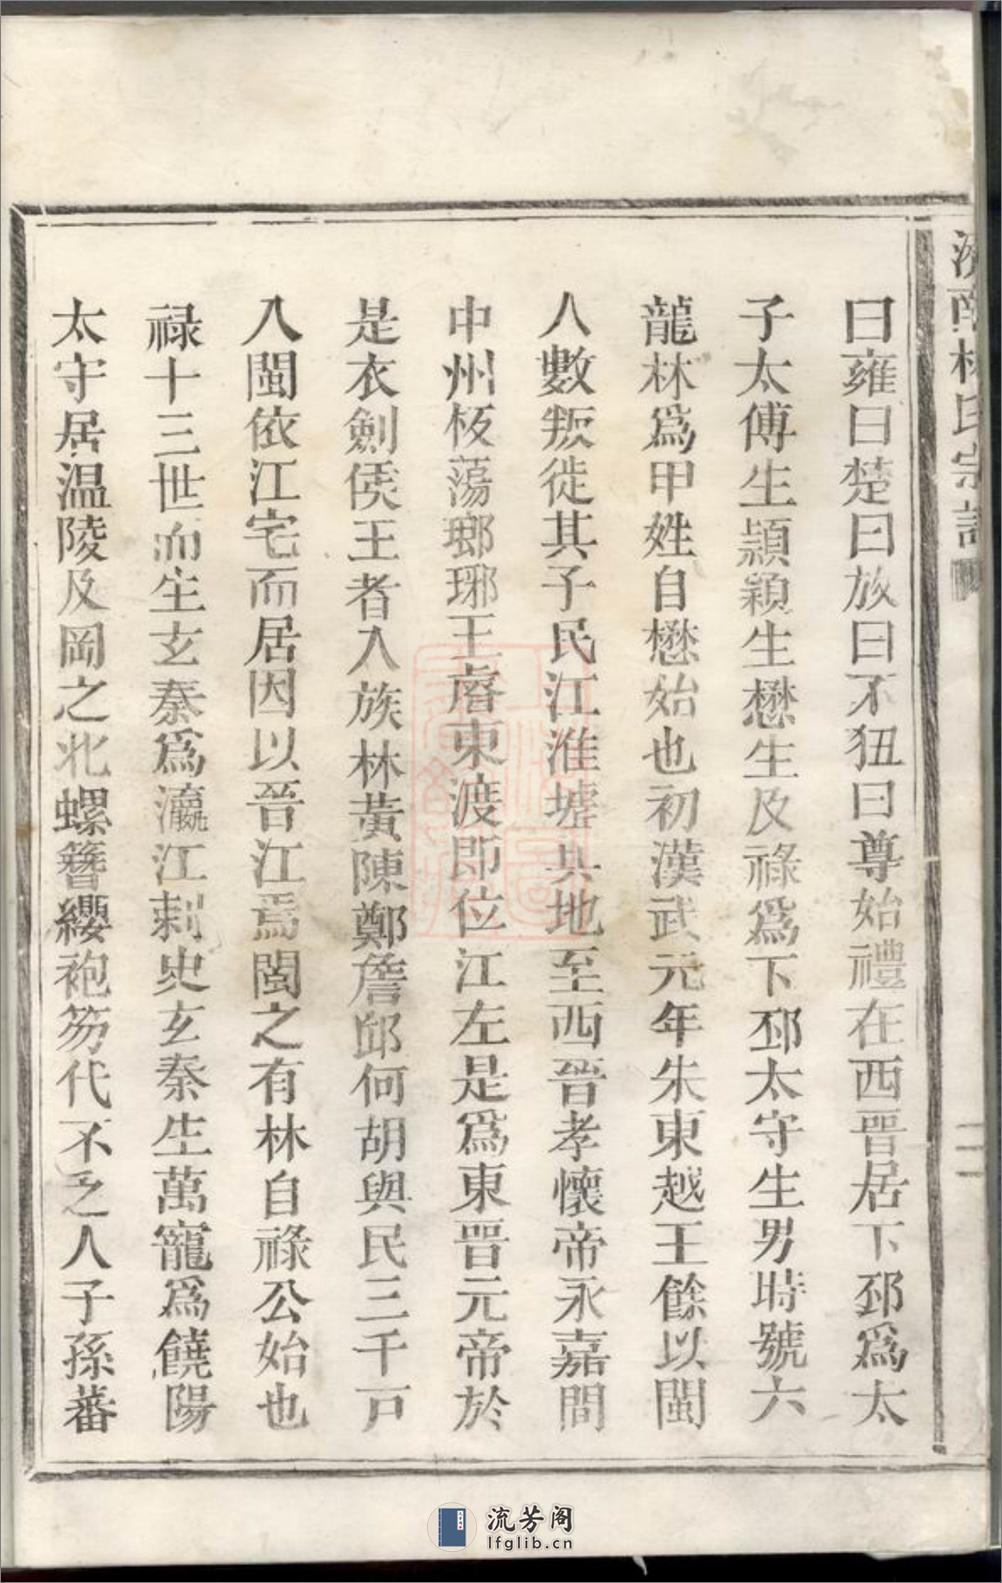 濟南林氏宗譜
曰雍曰楚曰放曰不狃曰尊始禮在西晉居下邳爲太
子太傅生頴穎生懋生及祿爲下邳太守生男時號六
龍林爲甲姓自懋始也初漢武元年朱東越王餘以閩
人數叛徙其子民江淮墟其地至西晉孝懷帝永嘉間
中州板蕩瑯琊王睿東渡即位江左是爲東晉元帝於
是衣劍矦王者入族林黃陳鄭詹邱何胡與民三千戸
入閩依江宅而居因以晉江焉閩之有林自祿公始也
祿十三世而生玄泰爲瀛江剌史玄泰生萬寵爲饒陽
太守居溫陵及岡之北螺簪纓袍笏代不乏人子孫蕃
流芳阁
lfglib.cn